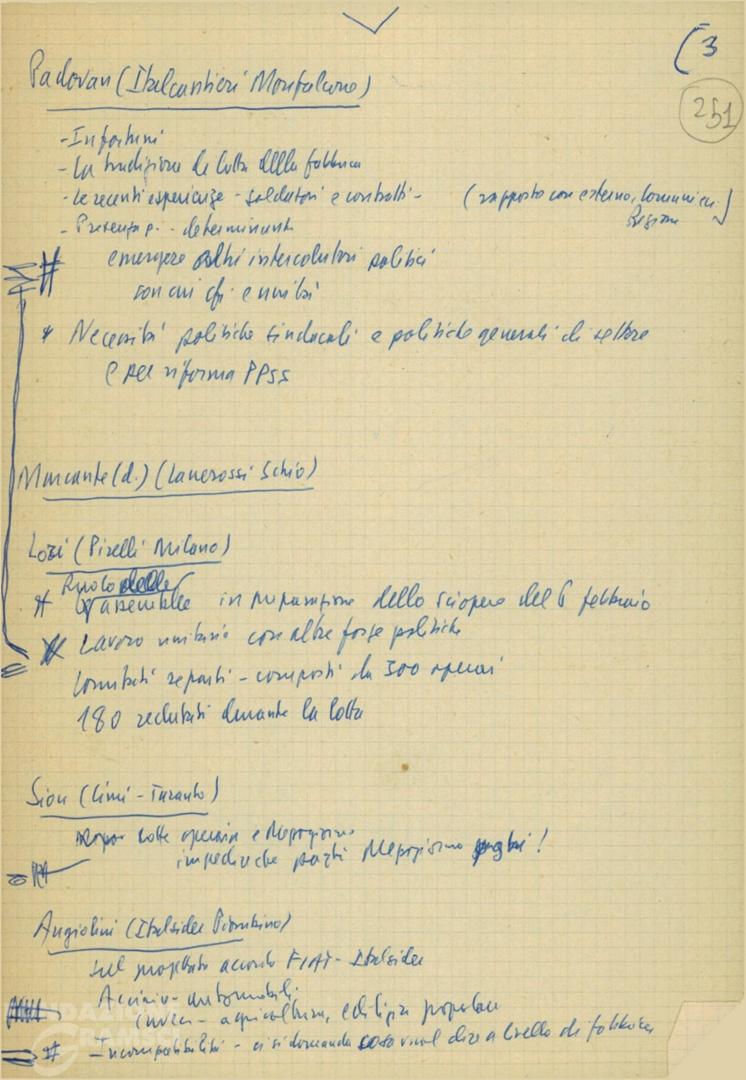 (3
251
Padovan (Italcantieri Monfalcone)
- Infortuni
- La tradizione di lotta della fabbrica
- Le recenti esperienze - saldatori e contratti - (rapporto con esterno, Comuni e
Regione)
- Presenza p. - determinante
# emergere altri interlocutori politici
con cui c'è unità
* Necessità politiche sindacali e politiche generali di settore
e per riforma PPSS
Marcante (d.) (Lanerossi Schio)
Lozi (Pirelli Milano)
# Ruolo delle assemblee in preparazione dello sciopero del 6 febbraio
Lavoro unitario con altre forze politiche
Comitati reparti - composti da 300 operai
180 reclutati durante la lotta
Sion (Cimi - Taranto)
lotte operaie e
impedire che
Angiolini (Italsider Piombino)
Sul progettato accordo FIAT - Italsider
Acciaio - automobili
invece - agricoltura, edilizia popolare
# Incompatibilità - ci si domanda cosa vuol dire a livello di fabbrica
FONDAZIONE
GRAMSCI